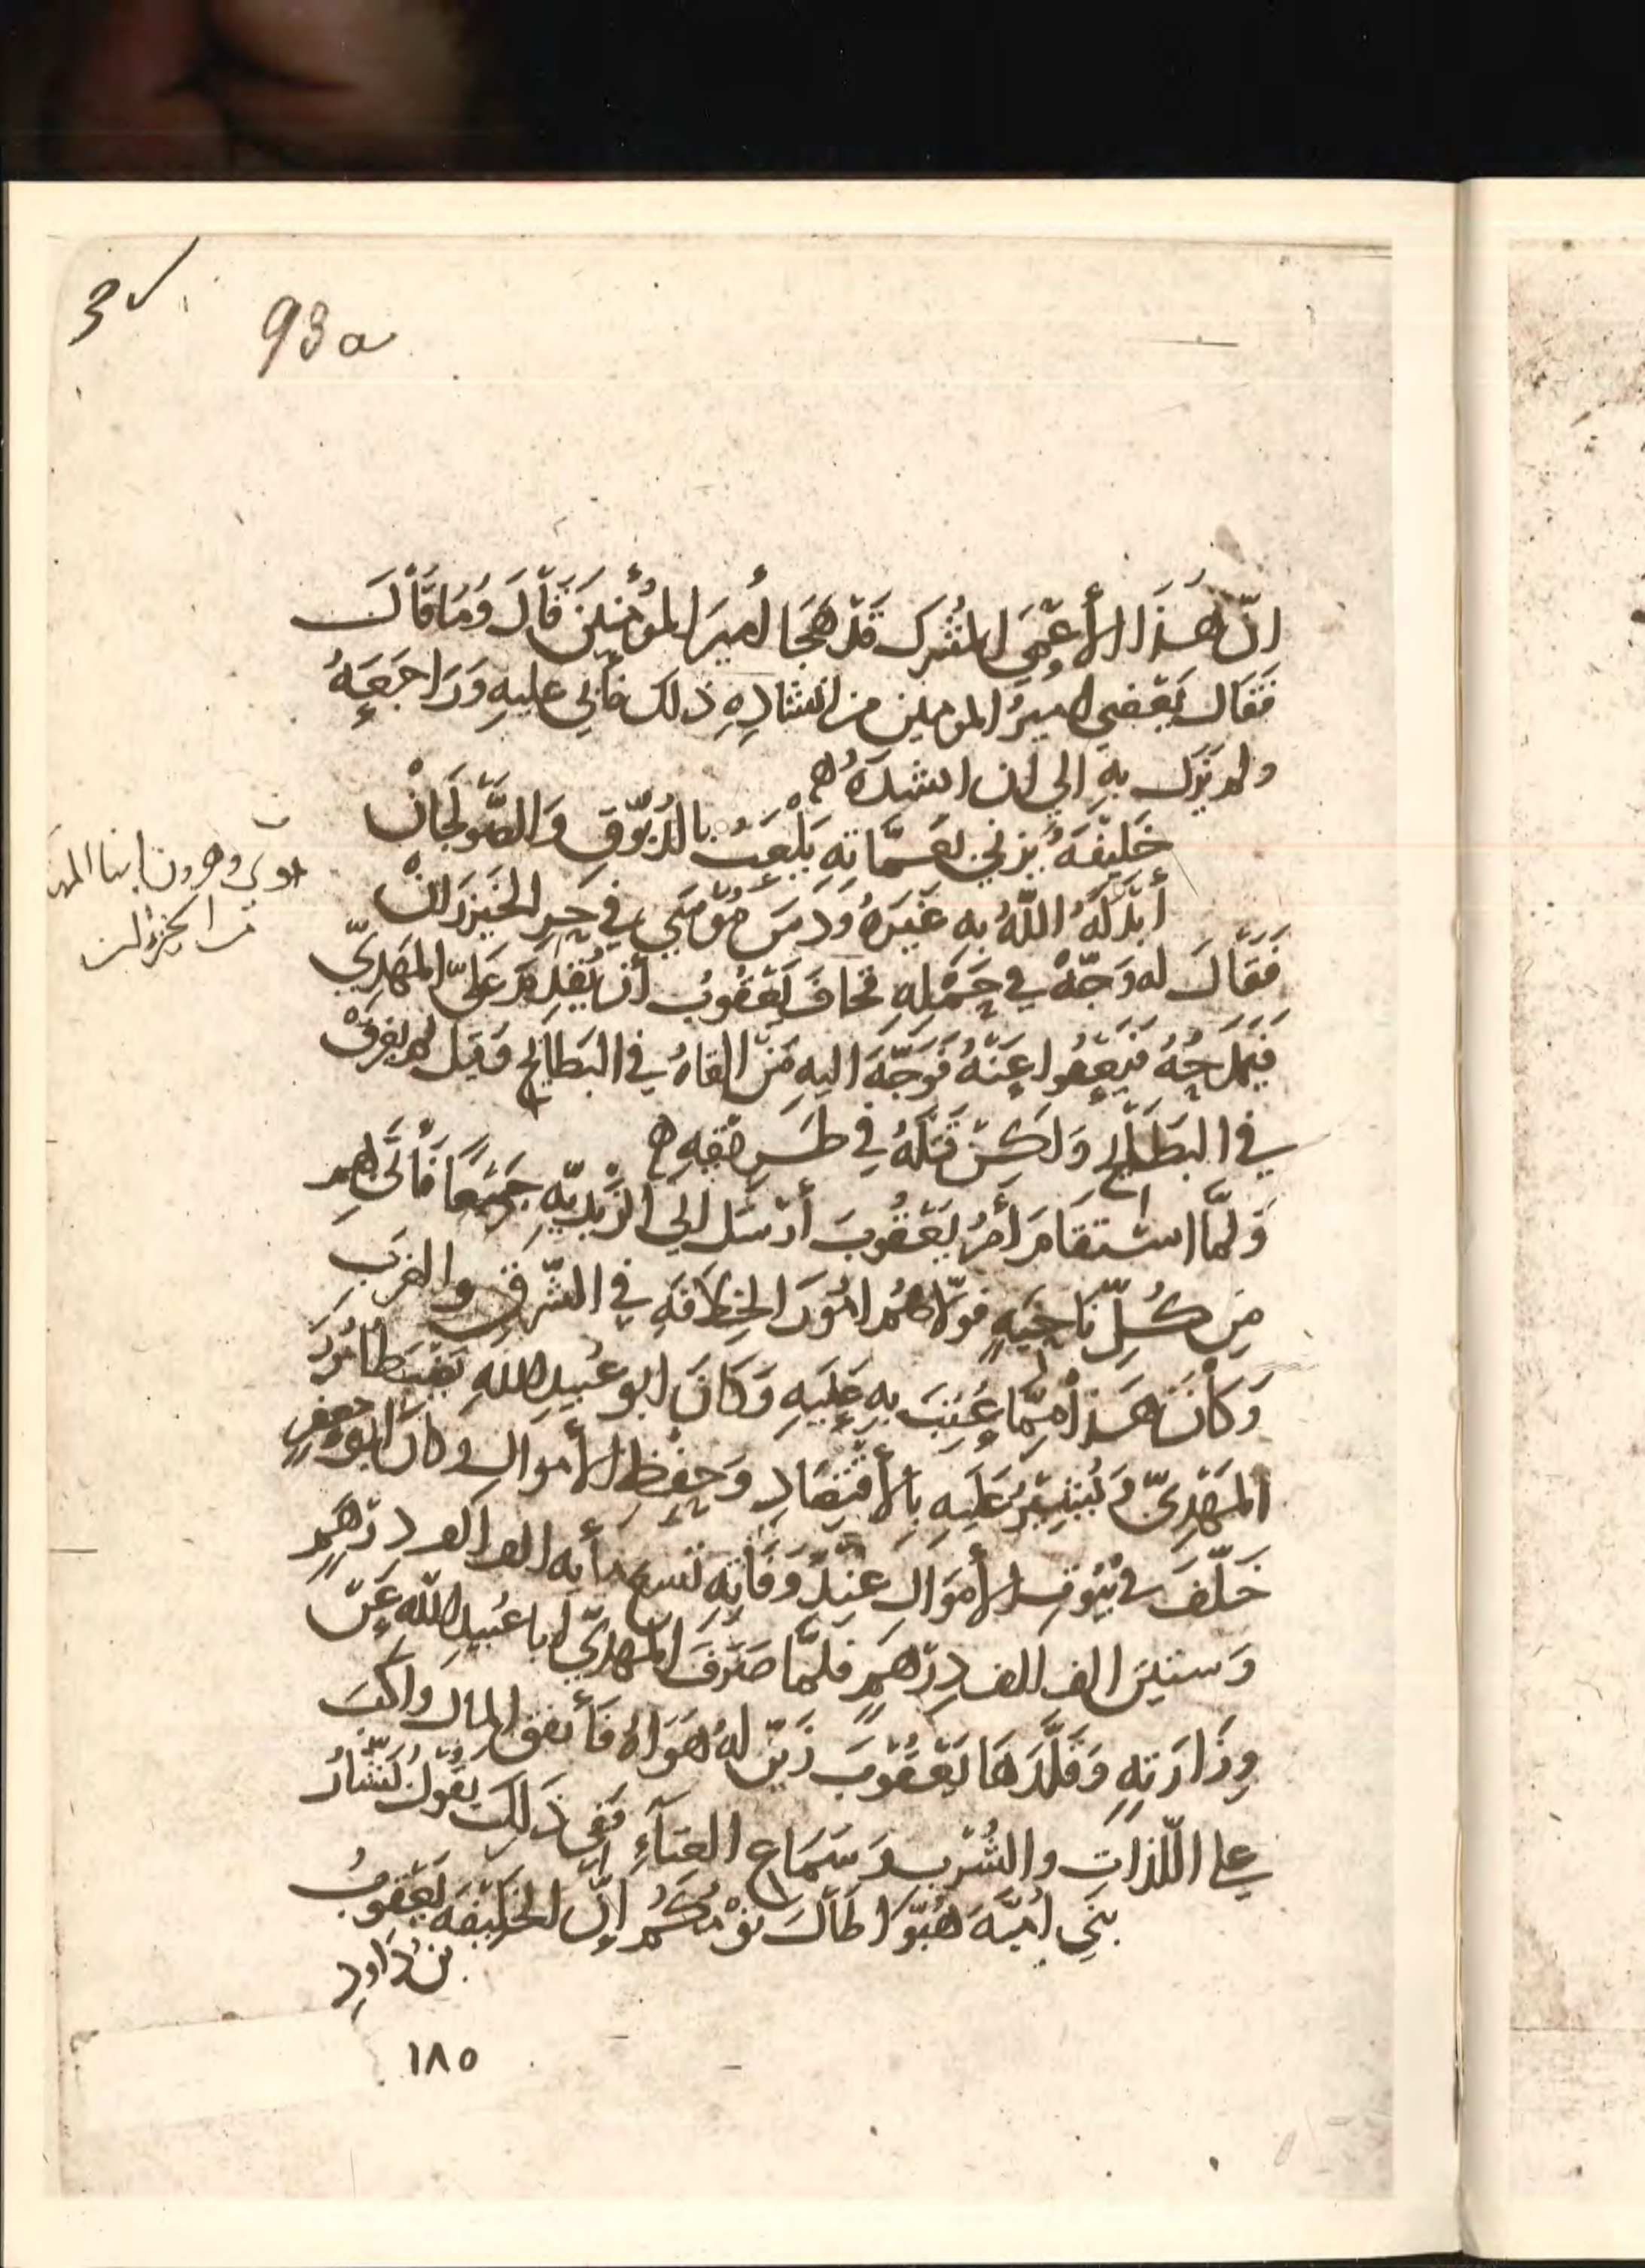 93a
انّ هَذَا الأَعْمَى المُشْرِك قَدْ هَجَا أَميرَ المُؤْمنِينَ فَقَالَ وَمَا قَالَ
فَقَال يَعْفيني اميرُ المومنين من انشادِهِ ذلك فأبي عليهِ وَرَاجَعَهُ
ولم يَزل بهِ الي ان انشدَهُ ه
خَليْفَهٌ يَزني بعَمَّاتهِ يَلْعَبُ بالدَّبّوْقِ وَالصَّوْلَجَانْ
أبْدَلَهُ اللّهُ به غَيْرَهُ وَدَسَّ مُوْسَي في حِرِ الخَيْزُرَانْ
موسى وهرون ابنا المهدي
من الخيزران
فَقَالَ له وَجّهْ في حَمْلِهِ فخافَ يَعْقُوبُ أن يَقْدِمَ عَلَى المَهْدِيّ
فَيَمْدَحُهُ فيَعْفُوا عَنْهُ فَوَجَّهَ اليهِ مَنْ القاهُ في البَطَايِحِ وَقيل لم يغرقْ
في البَطَايح وَلكِنْ قَتَلَهُ في طَرِيْقِهِ ه
وَلمَّا اسْتقَامَ أَمْرُ يَعْقُوبَ أرْسَل الي الزَّيْدِيّهِ جَمِيعًا فأتَى بهم
مِن كُلِّ نَاحِيَهٍ فوَلّاهُم امُورَ الخِلافَهِ في الشّرقِ والغربِ
وَكَانَ هَذَا مِمَّا عُتِبَ بهِ عَلَيهِ وَكَانَ ابو عُبيدِ اللهِ يَضبِطُ أمُورَ
المَهْدِيِّ وَيُشِيْرُ عَليهِ بالأقتِصَادِ وَحِفظِ الأموالِ وكانَ ابو جعفرٍ
خَلّفَ في بُيُوتِ الأموَالِ عِنْدَ وَفَاتِهِ تسع مأيه الف الف درْهَمٍ
وَستين الف الف دِرْهَمٍ فلمَّا صَرَفَ المَهديّ ابا عُبيدِ اللّه عَنْ
وِزَارَتهِ وَقَلَّدَهَا يَعْقوبَ زَيّن لهُ هَوَاهُ فَأَنفق المالَ واكبَّ
علي اللّذاتِ والشُّرْبِ وَسَمَاعِ الغنَآءِ فَفي ذَلِكَ يقولُ بَشّارُ
بَنِي اُميّهَ هُبّوا طَالَ نَوْمُكُم إنّ الخَليْفَهَ يَعْقوبُ
بنُ دَاودِ
١٨٥